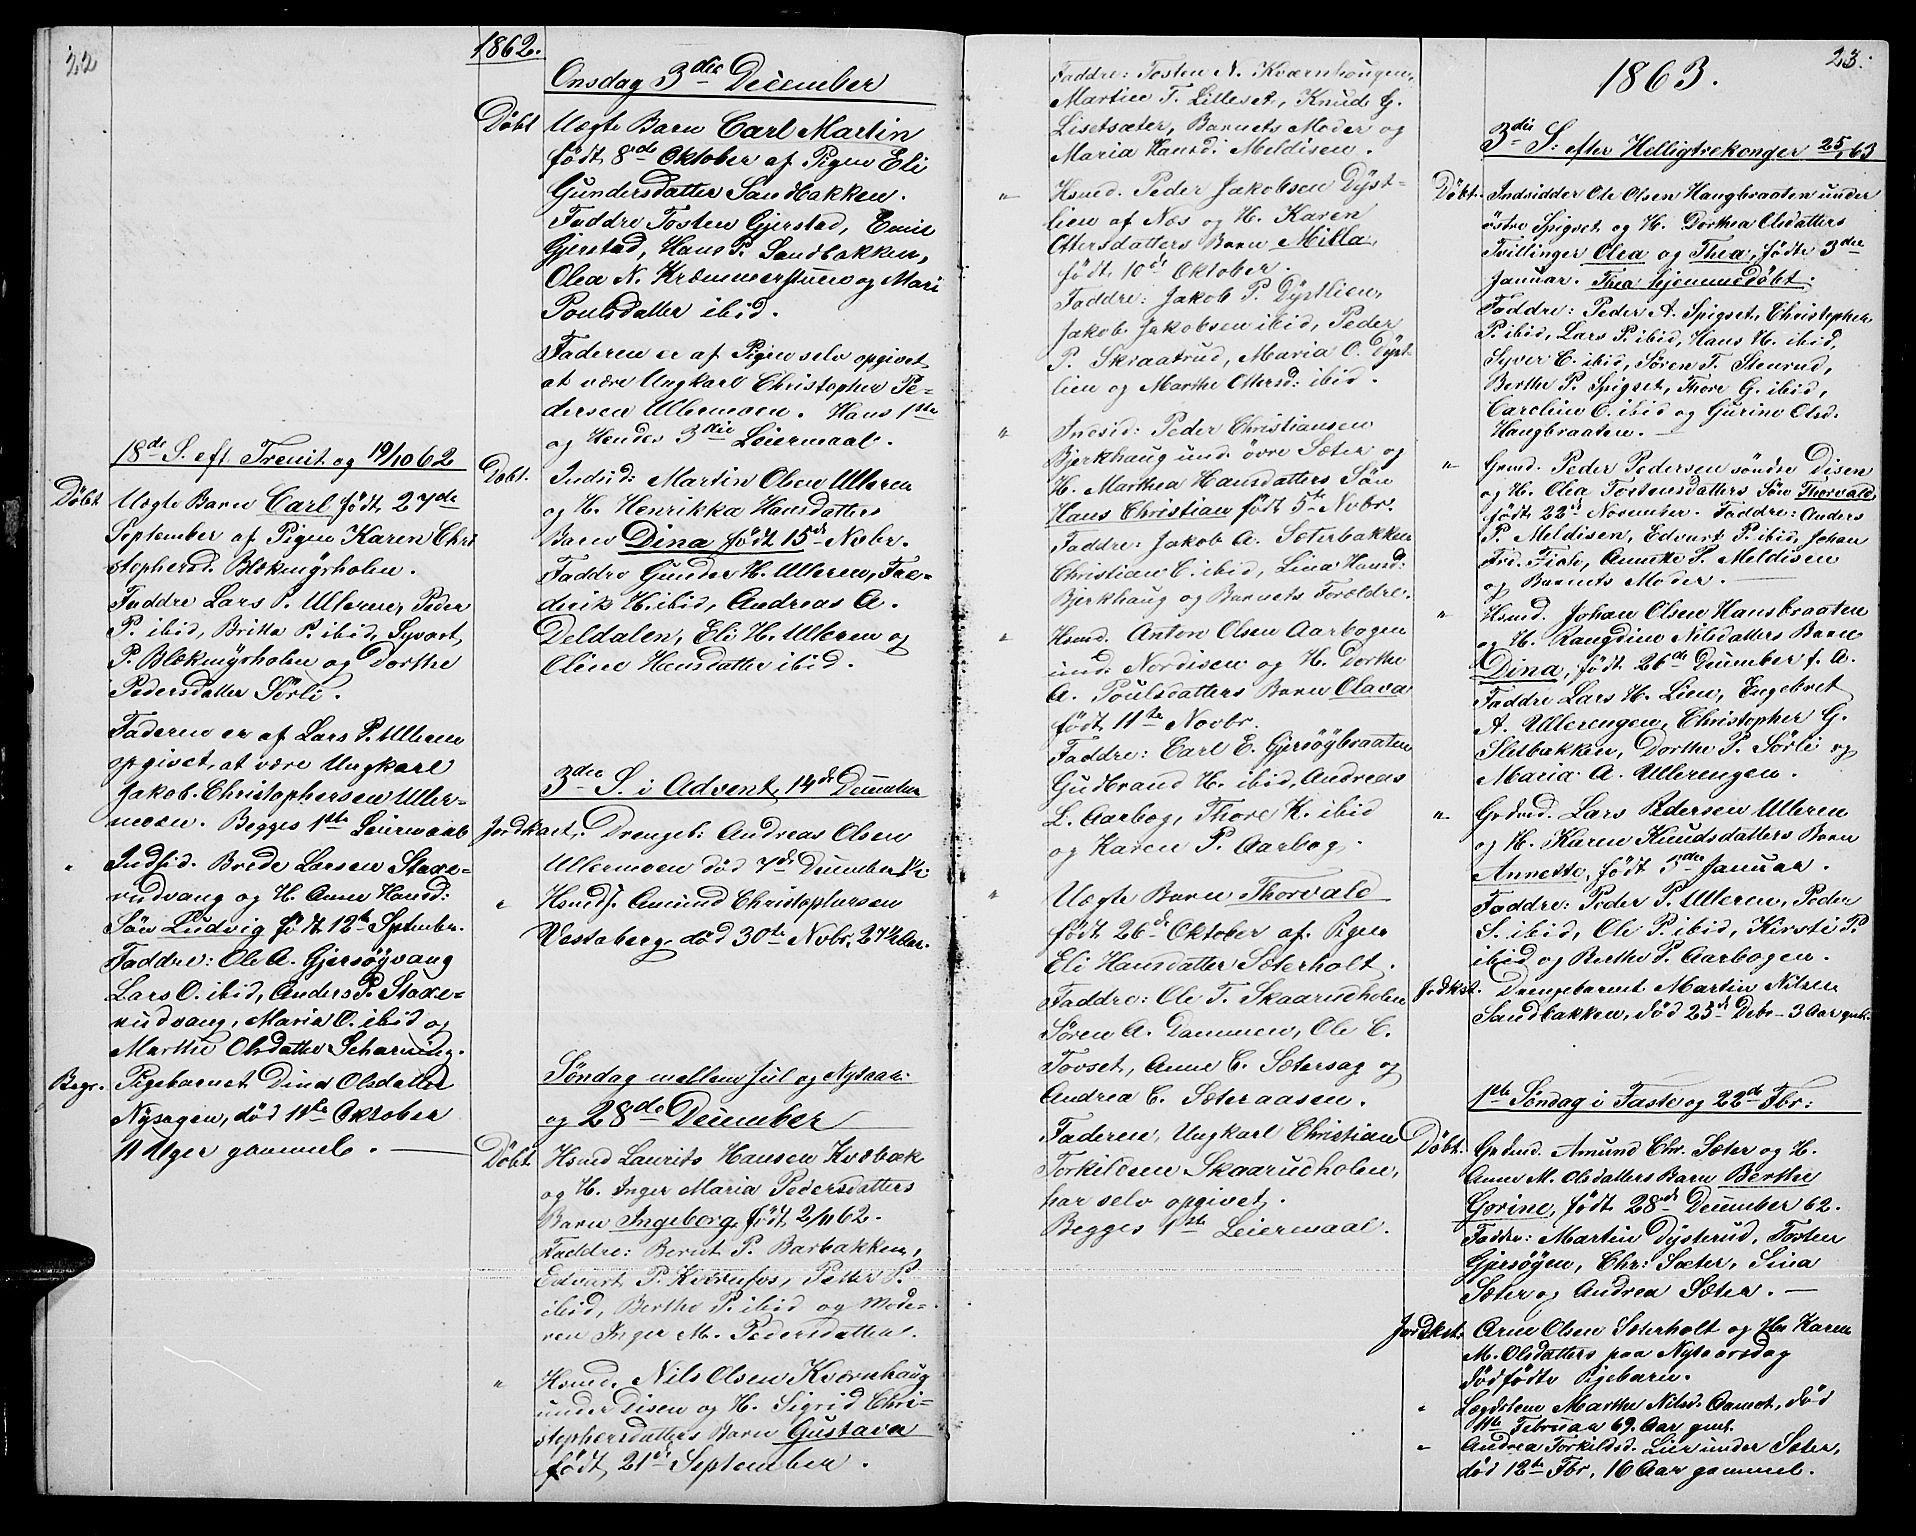 22
18de S. eft Trenit og 19/10 62
Döbt Uægte Barn Carl født 27de
September af Pigen Karen Chri
stophersd. Blækmyrholen.
Faddre Lars P. Ulleren, Peder
P. ibid, Britta P. ibid, Syvart
P. Blækmyrholen og Dorthe
Pedersdatter Sörli.
Faderen er af Lars P. Ulleren
opgivet, at være Ungkarl
Jakob Christophersen Uller-
moen. Begges 1ste Leiermaal
" Indsid. Brede Larsen Staxe-
rudvang og H. Anne Hansd:
Sön Ludvig født 12te Septembr.
Faddre: Ole A. Gjersöyvang
Lars O. ibid, Anders P. Staxe-
rudvang, Maria O. ibid og
Marthe Olsdatter Scharning.
Begr. Pigebarnet Dina Olsdatter
Nysagen, död 11te Oktober
11 Uger gammel.
1862.
Onsdag 3die December
Döbt Uægte Barn Carl Martin
født 8de Oktober af Pigen Eli
Gundersdatter Sandbakken.
Faddre Tosten Gjerstad, Emil
Gjerstad, Hans P. Sandbakken,
Olea N. Kræmmerstuen og Mari
Poulsdatter ibid.
Faderen er af Pigen selv opgivet
at være Ungkarl Christopher Pe-
dersen Ullermoen. Hans 1ste
og Hendes 3die Leiermaal.
Döbt. Indsid: Martin Olsen Ulleren
og H. Henrikka Hansdatters
Barn Dina født 15de Novbr.
Faddre Gunder H. Ulleren, Fre-
derik H. ibid, Andreas A.
Deldalen, Eli H. Ulleren og
Oline Hansdatter ibid.
3die S. i Advent, 14de December
Jordkast. Drengeb: Andreas Olsen
Ullermoen död 7de December
" Hsmdf. Amund Christophersen
Vestaberg, död 30te Novbr, 27½ Aar.
Söndag mellem Jul og Nytaar:
og 28de December
Döbt Hsmd Laurits Hansen Kvæbæk
og H. Inger Maria Pedersdatters
Barn Ingeborg, født 2/11 62.
Faddre: Bernt P. Barbakken,
Edvart P. Kvernfos, Petter P.
ibid, Berthe P. ibid og Mode-
ren Inger M. Pedersdatter.
" Hsmd. Nils Olsen Kværnhaug
under Disen og H. Sigrid Chri-
stophersdatters Barn Gustava
født 21de September.
Faddre: Tosten N. Kværnhougen,
Martin T. Lilleset, Knud G.
Lisetsæter, Barnets Moder og
Maria Hansd: Meldisen.
" Hsmd. Peder Jakobsen Dyst-
lien af Næs og H. Karen
Ottersdatters Barn Milla,
født 10de Oktober.
Faddre: Jakob P. Dystlien,
Jakob Jakobsen ibid, Peder
P. Skraatrud, Maria O. Dyst-
lien og Marthe Ottersd: ibid.
" Indsid: Peder Christiansen
Bjerkhaug under övre Sæter og
H. Marthea Hansdatters Sön
Hans Christian født 5te Novbr.
Faddre: Jakob A. Sæterbakken
Christian C. ibid, Lina Hansd:
Bjerkhaug og Barnets Forældre.
" Hsmd. Anton Olsen Aarbogen
und. Nordisen og H. Dorthe
A. Poulsdatters Barn Olava
født 11te Novbr.
Faddre: Carl E. Gjersöybraaten
Gudbrand H. ibid, Andreas
L. Aarbog, Thore K. ibid
og Karen P. Aarbog.
" Uægte Barn Thorvald
født 26de Oktober af Pigen
Eli Hansdatter Sæterholt.
Faddre: Ole T. Skaarudholen
Sören A. Dammen, Ole C.
Tovset, Anne C. Sætersag og
Andrea C. Sæteraasen.
Faderen, Ungkarl Christian
Torkildsen Skaarudholen,
har selv opgivet.
Begges 1ste Leiermaal.
23.
1863.
3die S. efter Helligtrekonger 25/1 63
Döbt. Indsidder Ole Olsen Haugbraaten under
östre Spigset og H. Dorthea Olsdatters
Tvillinger Olea og Thea, födte 3die
Januar. Thea hjemmedöbt.
Faddre: Peder A. Spigset, Christopher
P. ibid, Lars P. ibid, Hans H. ibid,
Syver C. ibid, Sören T. Stenrud,
Berthe P. Spigset, Thore G. ibid,
Caroline O. ibid og Gurine Olsd.
Haugbraaten.
" Grmd. Peder Pedersen söndre Disen
og H. Olea Tostensdatters Sön Thorvald
født 22de November. Faddre: Anders
P. Meldisen, Edvart P. ibid, Johan
Annette P. Meldisen
og Barnets Moder.
" Hsmd. Johan Olsen Hansbraaten
og H. Rangdine Nilsdatters Barn
Dina, født 26de December f. A.
Faddre Lars H. Lien, Engebret
A. Ullerengen, Christopher G.
Slitbakken, Dorthe P. Sörli og
Maria A. Ullerengen.
" Grdmd. Lars Pedersen Ulleren
og H. Karen Knudsdatters Barn
Annette, født 5de Januar.
Faddre: Peder P. Ulleren, Peder
S. ibid, Ole P. ibid, Kirsti P.
ibid og Berthe P. Aarbogen.
Jordkst. Drengebarnet Martin Nilsen
Sandbakken, död 25de Debr. 3 Aar gml.
1ste Söndag i Faste og 22de Fbr:
Döbt. Grdmd. Amund Chr. Sæter og H.
Anne M. Olsdatters Barn Berthe
Gorine, født 28de December 62.
Faddre: Martin Dysterud, Tosten
Gjersöyen, Chr: Sæter, Lina
Sæter og Andrea Sæter.
Jordkst. Arne Olsen Sæterholt og Hu Karen
M. Olsdatters paa Nytaarsdag
dödfödte Pigebarn.
" Lægdslem Marthe Nilsd. Aamot, död
11te Februar 69 Aar gml.
" Andrea Torkildsd. Lier under Sæter,
död 12te Fbr, 16 Aar gammel.